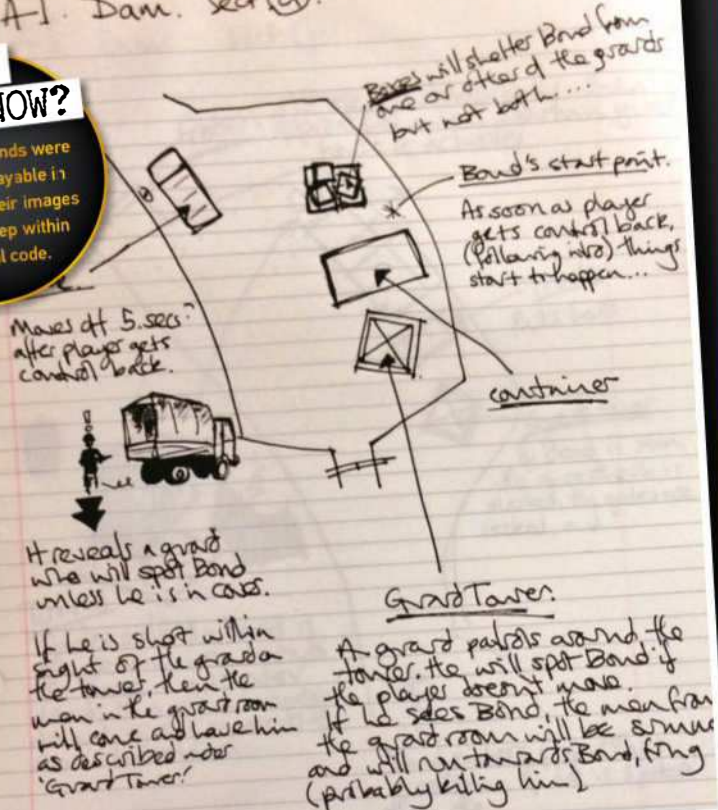 A-1. Dam. Sec
NOW?
nds were
ayable in
eir images
ep within
l code.
Boxes will shelter Bond from
one or other of the guards
but not both....
Bond's start point.
As soon as player
gets control back,
(following intro) things
start to happen...
Moves off 5.secs
after player gets
control back.
container
It reveals a guard
who will spot Bond
unless he is in cover.
If he is shot within
sight of the guard on
the tower, then the
men in the guard room
will come and have him
as described under
'Guard Tower!'
Guard Tower.
A guard patrols around the
tower. He will spot Bond if
the player doesn't move.
If he sees Bond, the men from
the guard room will be
and will run towards Bond, firing
(probably killing him)